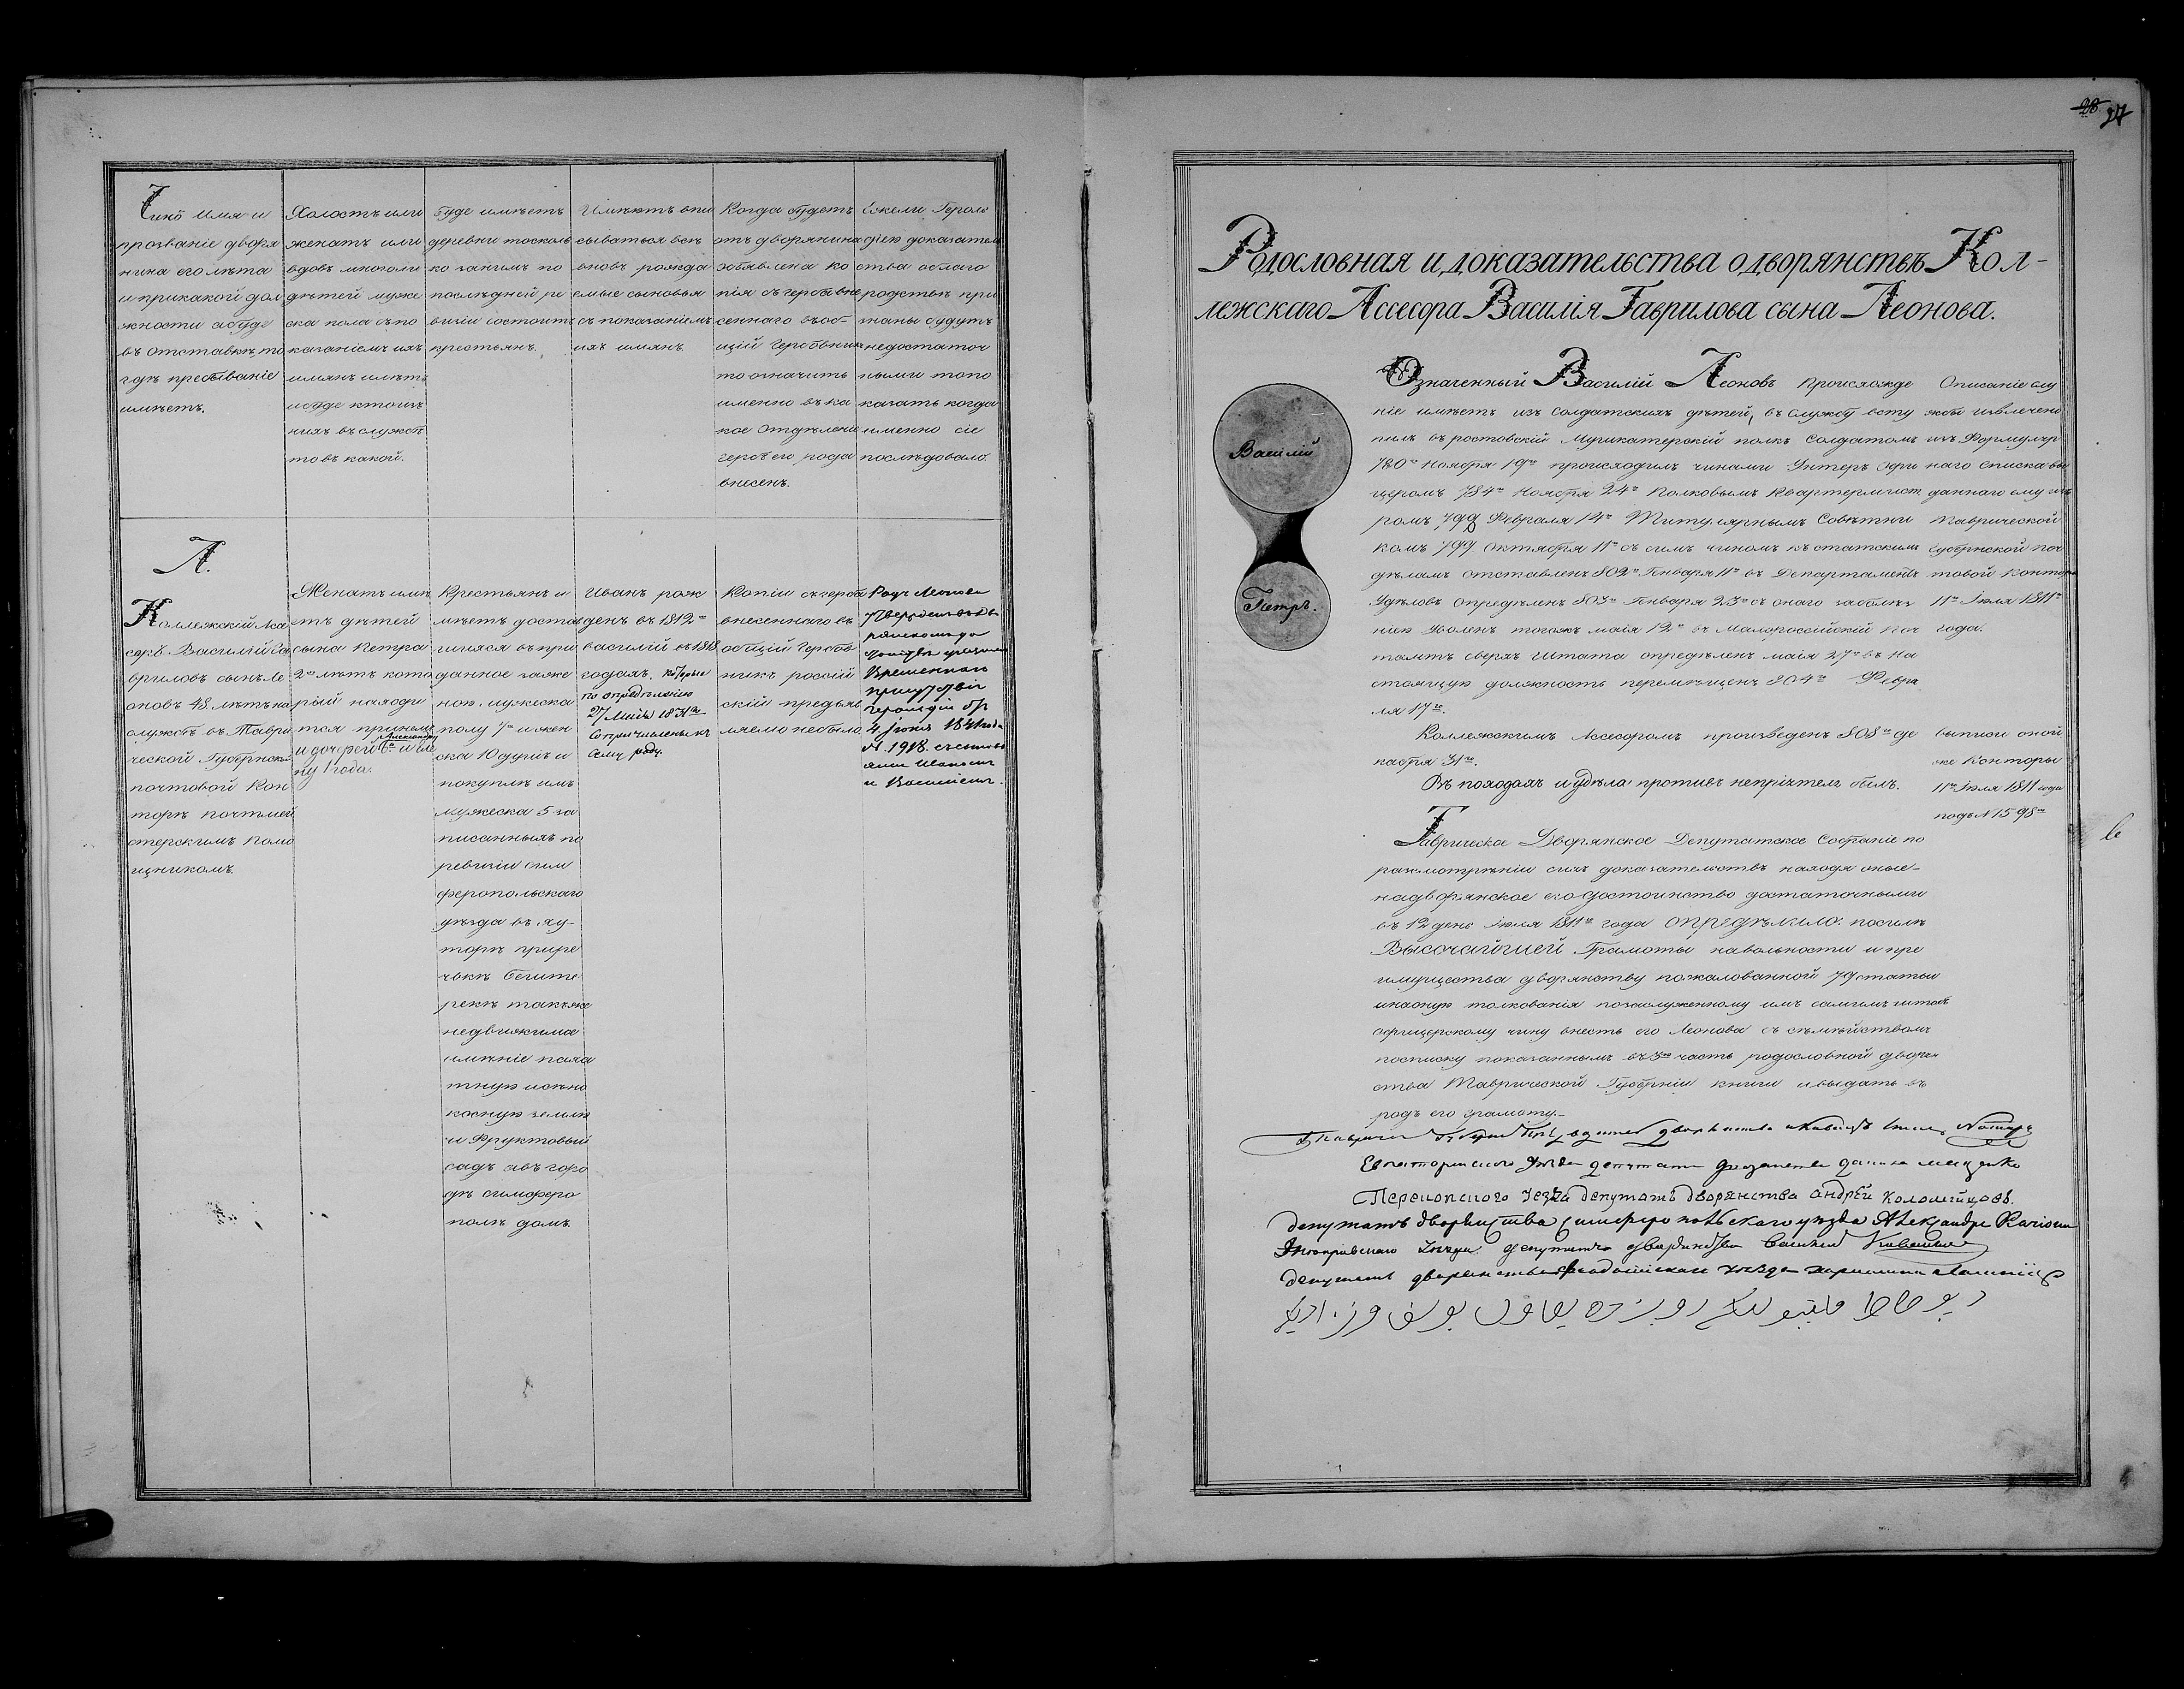 Чинъ имя и
прозваніе дворя
нина его лѣта
и прикакой дол
жности абуде
въ отставкѣ то
гдѣ пребываніе
имѣетъ.
Холостъ или
женатъ или
вдовъ многоли
дѣтей муже
ска пола съпо
казаніемъ ихъ
имянъ илѣтъ
ибуде ктоизъ
нихъ въслужбѣ
товъ какой.
Буде имѣетъ
деревни тосколь
ко занимъ по
послѣдней ре
визіи состоитъ
крестьянъ.
Имѣютъ впи
сываться всѣ
вновь рожда
емые сыновья
съ показаніемъ
ихъ имянъ.
Когда будетъ
отъ дворянина
объявлена ко
пія съгербавне
сеннаго въоб-
щій Гербовникъ
то означить
именно въка
кое отдѣленіе
гербъ его рода
внесенъ.
Ежели Героль
діею доказатель
ства облаго
родствѣ при
знаны будутъ
недостаточ
ными топо
казать когда
именно сіе
послѣдовало.
Л.
Коллежскій Асе
соръ Василій Га
вриловъ сынъ Ле
оновъ 48 лѣтъ на
службѣ въ Таври
ческой Губернской
почтовой Кон
торѣ почтмей
стерскимъ Помо
щникомъ.
Женатъ имѣ
етъ дѣтей
сына Петра
2хъ лѣтъ кото
рый находи
тся при немъ
Александру
и дочерей и Еле
ну 1 года.
Крестьянъ и
мѣетъ достав
шихся въпри
данное зажe
ною, мужеска
полу 7 и жен
ска 10 душъ и
покупкѣ имъ
мужеска 5 за
писанныхъ по
ревизіи сим
феропольскаго
уѣзда въ ху-
торѣ при рѣ
чькѣ Беште
рекѣ такъже
недвижимое
имѣніе паха
тную исѣно
косную землю
и Фруктовый
садъ авъ горо
дѣ симферо
полѣ домъ.
Иванъ рож
денъ въ 1812мъ
василій въ1818
годахъ. которые
по опредѣленію
27 Маія 1831го
сопричислены къ
сему роду.
Копіи съгерба
внесеннаго въ
общій Гербов
никъ россій
скій предъяв
ляемо небыло.
Родъ Леонова
утвержденъ въ дво
рянскомъ до
стоинствѣ указомъ
Временнаго
присутствія
Герольдіи отъ
4 Іюня 1841 года
№ 1918. съ сыновь
ями Иваномъ
и Василіемъ.
28 27
Родословная и доказательства одворянствѣ Кол-
лежскаго Ассесора Василія Гаврилова сына Леонова.
Василій
Петръ.
Означенный Василій Леоновъ происхожде
ніе имѣетъ изъ солдатскихъ дѣтей, въ службу всту
пилъ въ ростовскій Мушкатерскій полкъ Солдатомъ
780го Ноября 19го происходилъ чинами Унтеръ офи
церомъ 784го Ноября 24го Полковымъ Квартермист
ромъ 798 Февраля 14го Титулярнымъ Совѣтни
комъ 799 октября 11го съ симъ чиномъ къ статскимъ
дѣламъ отставленъ 802го Генваря 11го въ Департаментъ
Удѣловъ опредѣленъ 803го Генваря 23го съ онаго заболѣз
нію Уволенъ тогожъ маія 12го въ Малороссійскій Поч
тамтъ сверхъ Штата опредѣленъ маія 27го въ На
стоящую должность перемѣщенъ 804го Февра
ля 17го.
Коллежскимъ Ассесоромъ произведенъ 808го де
кабря 31го.
Въ походахъ и удѣла противъ непріятеля былъ.
Описаніе слу
жбы извлечено
изъ Формуляр
наго Списка вы
даннаго ему изъ
Таврической
Губернской поч
товой Конторы
11го Іюля 1811го
года.
выписи оной
же Конторы
11го Іюля 1811 года
подъ №1598мъ
Таврическое Дворянское Депутатское Собраніе по
размотрѣніи сихъ доказательствъ находя оные-
надворянское его достоинство достаточными
въ 12 день Іюля 1811го года опредѣлило: посилѣ
Высочайшей Грамоты навольности и пре
имущества дворянству пожалованной 79 статьи
инаоную толкованія позаслуженному имъ самимъ штабъ
офицерскому чину внесть его Леонова съ сѣмѣйствомъ
посписку показаннымъ въ3ю часть родословной дворян
ства Таврической Губерніи книги и выдать въ
родъ его грамоту.-
Евпаторискаго уѣзда депутатъ дворянства
Перекопского уезда депутатъ дворянства андрей Коломейцовъ.
депутатъ дворянства симферопольскаго уезда Александръ
Днепровскаго уезда депутатъ дворянства Василій
депутатъ дворянства Феодосійскаго уезда